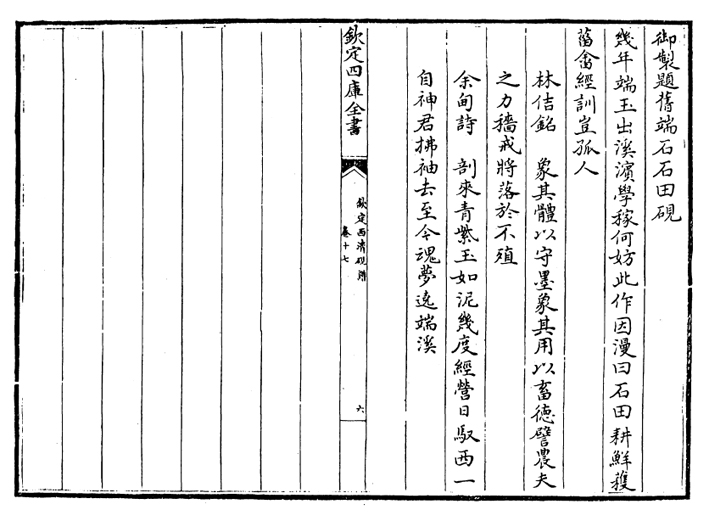 御製題舊端石石田硯
幾年端玉出溪濱學稼何妨此作因漫曰石田耕鮮穫
菑畬經訓豈孤人
林佶銘　象其體以守墨象其用以畜德譬農夫
之力穡戒將落於不殖
余甸詩　剖來青紫玉如泥幾度經營日馭西一
自神君拂袖去至今魂夢遶端溪
欽定四庫全書
欽定西清硯譜
卷十七
六